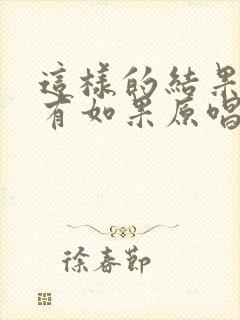 這樣的結果
有如果原唱
徐春節